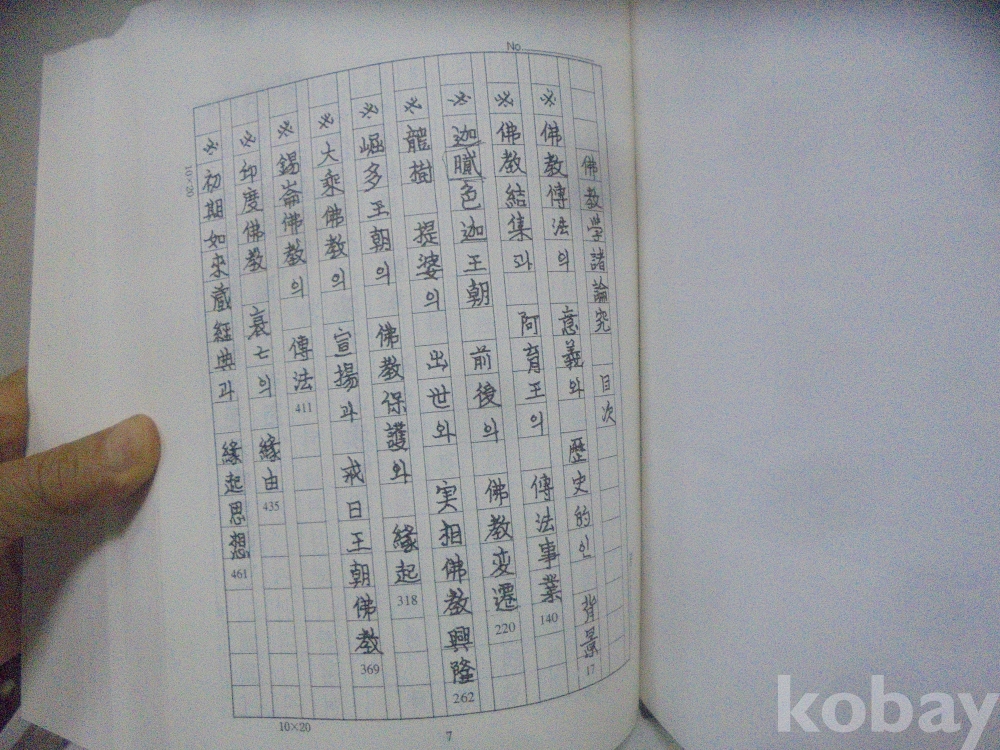 No.
佛教學諸論究 目次
※ 佛教傳法의 意義와 歷史的인 背景 17
※ 佛教結集과 阿育王의 傳法事業 140
※ 迦膩色迦王朝 前後의 佛教変遷 220
※ 龍樹 提婆의 出世와 実相佛教興隆 262
※ 崛多王朝의 佛教保護와 緣起 318
※ 大乘佛教의 宣揚과 戒日王朝佛教 369
※ 錫崙佛教의 傳法 411
※ 印度佛教 衰亡의 緣由 435
※ 初期如來藏經典과 緣起思想 461
10×20
10×20
7
kobay